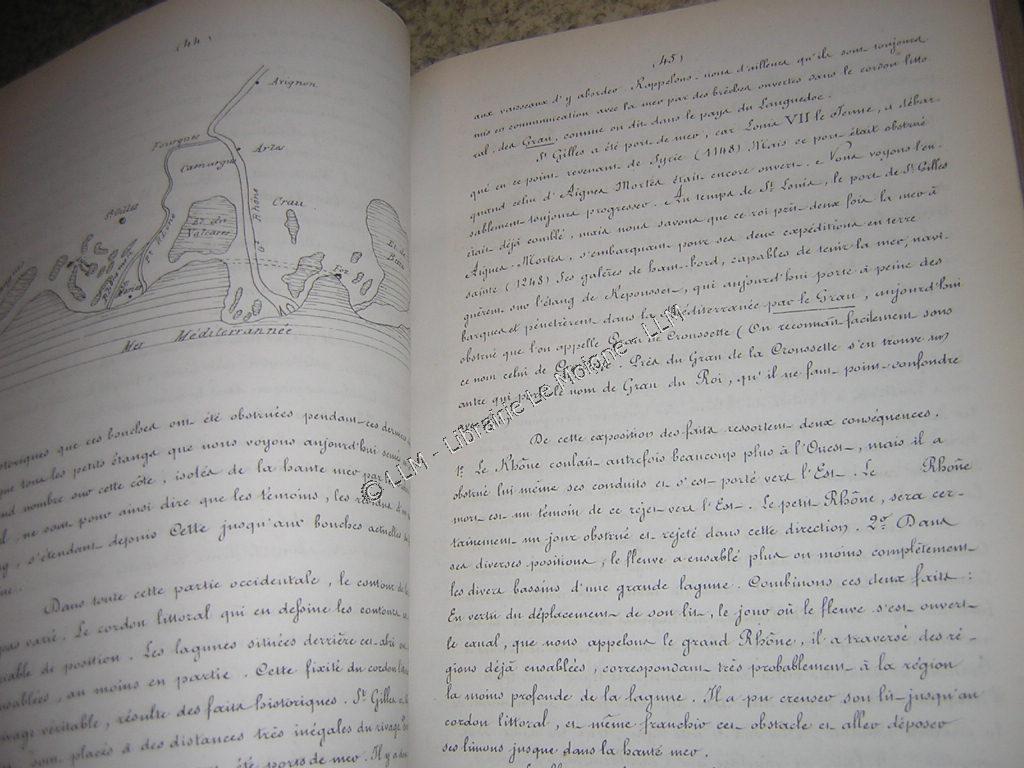 (44)
Avignon
Fourques
Arles
Camargue
Crau
Gd Rhône
Pt Rhône
St Gilles
Et. du Valcarès
Fos
Mer Méditerrannée
que ces bouches ont été obstruées pendant ces derniers
que tous les petits étangs que nous voyons aujourd'hui semés
nombre sur cette côte, isolés de la haute mer par
ne sont pour ainsi dire que les témoins, les
s'étendant depuis Cette jusqu'aux bouches actuelles
Dans toute cette partie occidentale, le contour de
pas varié. Le cordon littoral qui en dessine les contours
de position. Les lagunes situées derrière cet abri
ensablées, au moins en partie. Cette fixité du cordon
rivage véritable, résulte des faits historiques. St Gilles
sont placés à des distances très inégales du rivage
été ports de mer. Il y a
(45)
aux vaisseaux d'y aborder. Rappelons-nous d'ailleurs qu'ils sont toujours
mis en communication avec la mer par des brêches ouvertes dans le cordon litto-
ral, des Grau, comme on dit dans le pays du Languedoc.
St Gilles a été port de mer, car Louis VII le Jeune, a débar-
qué en ce point revenant de Syrie (1148) Mais ce port était obstrué
quand celui d'Aigues Mortes était encore ouvert. Nous voyons l'en-
sablement toujours progresser. Au temps de St Louis, le port de St Gilles
était déjà comblé, mais nous savons que ce roi prit deux fois la mer à
Aigues-Mortes, s'embarquant pour ses deux expéditions en terre
sainte (1248) Ses galères de haut-bord, capables de tenir la mer, navi-
guèrent sur l'étang de Repousset, qui aujourd'hui porte à peine des
barques et pénétrèrent dans la Méditerranée par le Grau, aujourd'hui
obstrué que l'on appelle Grau de Croussette (On reconnaît facilement sous
ce nom celui de Près du Grau de la Croussette s'en trouve un
autre qui porte le nom de Grau du Roi, qu'il ne faut point confondre
De cette exposition des faits ressortent deux conséquences.
1° Le Rhône coulait autrefois beaucoup plus à l'Ouest, mais il a
obstrué lui même ses conduits et s'est porté vers l'Est. Le Rhône
mort est un témoin de ce rejet vers l'Est. Le petit Rhône, sera cer-
tainement un jour obstrué et rejeté dans cette direction. 2° Dans
ses diverses positions, le fleuve a ensablé plus ou moins complètement
les divers bassins d'une grande lagune. Combinons ces deux faits:
En vertu du déplacement de son lit, le jour où le fleuve s'est ouvert
le canal, que nous appelons le grand Rhône, il a traversé des ré-
gions déjà ensablées, correspondant très probablement à la région
la moins profonde de la lagune. Il a pu creuser son lit jusqu'au
cordon littoral, et même franchir cet obstacle et aller déposer
ses limons jusque dans la haute mer.
© LLM - Librairie Le Moigne - LLM